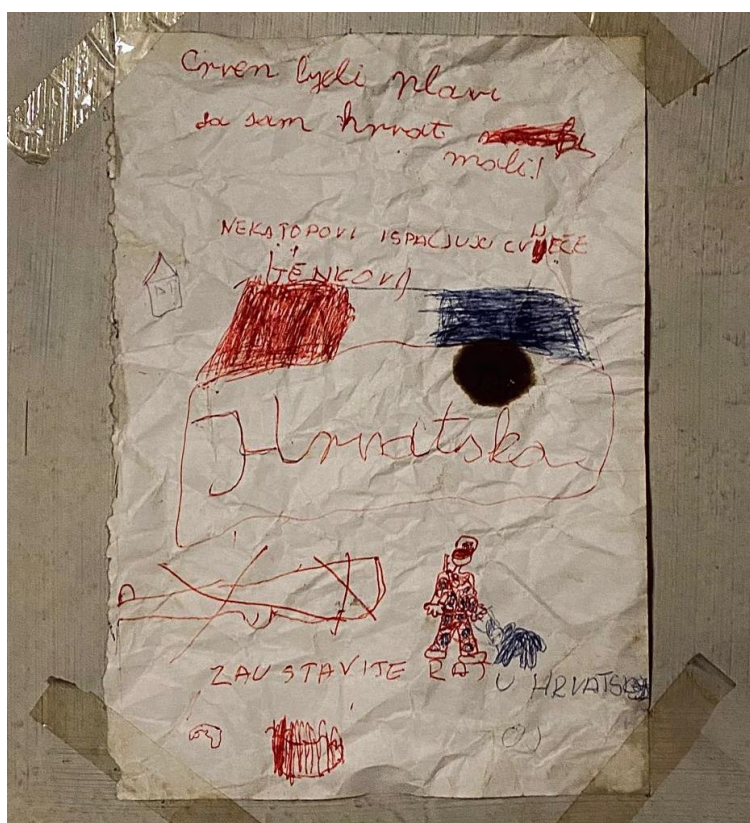 Crven bjeli plavi
da sam hrvat
mali!
NEKA TOPOVI ISPALJUJU CVIJEČE
TENKOVI
Hrvatska
ZAUSTAVITE RAT
U HRVATSKOJ